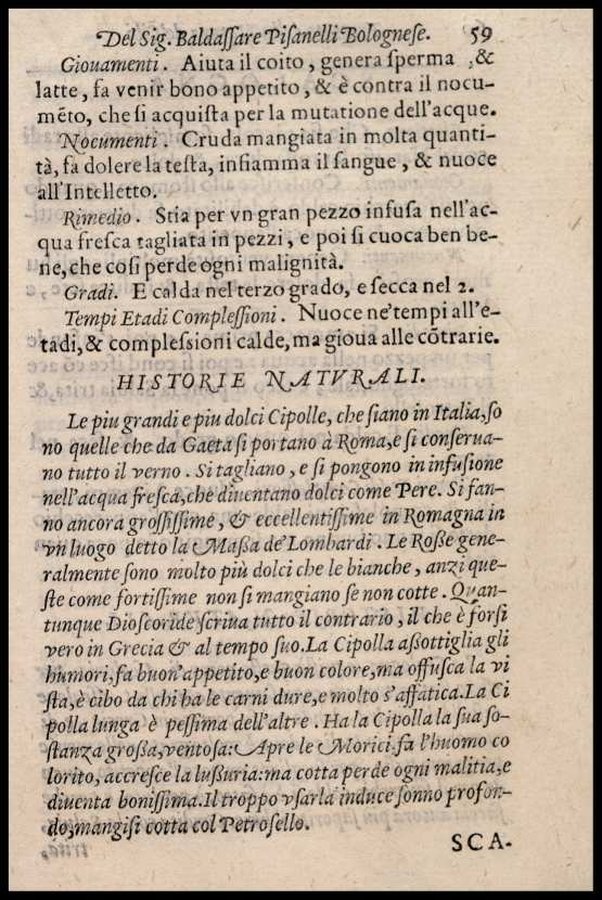 Del Sig. Baldaſſare Piſanelli Bologneſe. 59
Giouamenti. Aiuta il coito, genera ſperma, &
latte, fa venir bono appetito, & è contra il nocu-
mēto, che ſi acquiſta per la mutatione dell'acque.
Nocumenti. Cruda mangiata in molta quanti-
tà, fa dolere la teſta, infiamma il ſangue, & nuoce
all'Intelletto.
Rimedio. Stia per vn gran pezzo infuſa nell'ac-
qua freſca tagliata in pezzi, e poi ſi cuoca ben be-
ne, che coſi perde ogni malignità.
Gradi. E calda nel terzo grado, e ſecca nel 2.
Tempi Etadi Compleſſioni. Nuoce ne'tempi all'e-
tadi, & compleſsioni calde, ma gioua alle cōtrarie.
HISTORIE NATVRALI.
Le piu grandi e piu dolci Cipolle, che ſiano in Italia, ſo
no quelle che da Gaeta ſi portano à Roma, e ſi conſerua-
no tutto il verno. Si tagliano, e ſi pongono in infuſione
nell'acqua freſca, che diuentano dolci come Pere. Si fan-
no ancora groſſiſſime, & eccellentiſſime in Romagna in
vn luogo detto la Maßa de'Lombardi. Le Roße gene-
ralmente ſono molto più dolci che le bianche, anzi que-
ſte come fortiſſime non ſi mangiano ſe non cotte. Quan-
tunque Dioſcoride ſcriua tutto il contrario, il che è forſi
vero in Grecia & al tempo ſuo. La Cipolla aßottiglia gli
humori, fa buon'appetito, e buon colore, ma offuſca la vi
ſta, è cibo da chi ha le carni dure, e molto s'affatica. La Ci
polla lunga è peſſima dell'altre. Ha la Cipolla la ſua ſo-
ſtanza großa, ventoſa: Apre le Morici, fa l'huomo co
lorito, accreſce la lußuria: ma cotta perde ogni malitia, e
diuenta boniſſima. Il troppo vſarla induce ſonno profon-
do; mangiſi cotta col Petroſello.
SCA-